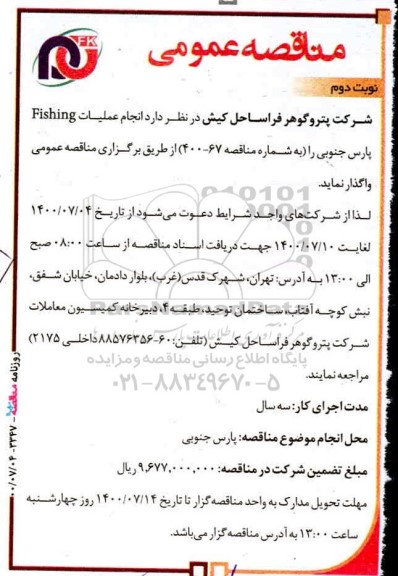 مناقصه عمومی
نوبت دوم
شرکت پتروگوهر فراساحل کیش در نظر دارد انجام عملیات Fishing
پارس جنوبی را (به شماره مناقصه ۶۷-۴۰۰) از طریق برگزاری مناقصه عمومی
واگذار نماید.
لذا از شرکت‌های واجد شرایط دعوت می‌شود از تاریخ ۱۴۰۰/۰۷/۰۴
لغایت ۱۴۰۰/۰۷/۱۰ جهت دریافت اسناد مناقصه از ساعت ۰۸:۰۰ صبح
الی ۱۳:۰۰ به آدرس: تهران، شهرک قدس(غرب)، بلوار دادمان، خیابان شفق،
نبش کوچه آفتاب، ساختمان توحید، طبقه ۴، دبیرخانه کمیسیون معاملات
شرکت پتروگوهر فراساحل کیش (تلفن: ۶۰-۸۸۵۷۶۳۵۶ داخلی ۲۱۷۵)
پایگاه اطلاع رسانی مناقصه و مزایده
مراجعه نمایند.
۰۲۱-۸۸۳۴۹۶۷۰-۵
مدت اجرای کار: سه سال
محل انجام موضوع مناقصه: پارس جنوبی
مبلغ تضمین شرکت در مناقصه: ۹,۶۷۷,۰۰۰,۰۰۰ ریال
مهلت تحویل مدارک به واحد مناقصه‌گزار تا تاریخ ۱۴۰۰/۰۷/۱۴ روز چهارشنبه
ساعت ۱۳:۰۰ به آدرس مناقصه‌گزار می‌باشد.
روزنامه مناقصه - ۲۳۴۷ - ۰۰/۰۷/۰۴
FK